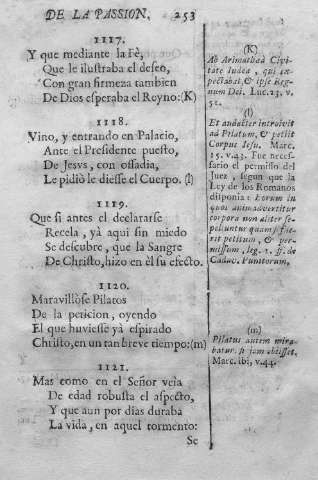 DE LA PASSION. 253
1117.
Y que mediante la Fè,
Que le ilustraba el deseo,
Con gran firmeza tambien
De Dios esperaba el Reyno: (K)
1118.
Vino, y entrando en Palacio,
Ante el Presidente puesto,
De Jesvs, con ossadia,
Le pidiò le diesse el Cuerpo. (l)
1119.
Que si antes el declararse
Recela, yà aqui sin miedo
Se descubre, que la Sangre
De Christo, hizo en èl su efecto.
1120.
Maravillòse Pilatos
De la peticion, oyendo
El que huviesse yà espirado
Christo, en un tan breve tiempo: (m)
1121.
Mas como en el Señor veìa
De edad robusta el aspecto,
Y que aun por dias duraba
La vida, en aquel tormento:
Se
(K)
Ab Arimathea Civi-
tate Iudea, qui ex-
pectabat, & ipse Reg-
num Dei. Luc. 23. v.
52.
(l)
Et audacter introivit
ad Pilatum, & petiit
Corpus Iesu. Marc.
15. v. 43. Fue neces-
sario el permisso del
Juez, segun que la
Ley de los Romanos
disponia: Eorum in
quos animadvertitur
corpora non aliter se-
peliuntur quam, si fue-
rit petitum, & per-
missum, leg. 1. ff. de
Cadav. Punitorum.
(m)
Pilatus autem mira-
batur si jam obiisset.
Marc. ibi, v. 44.